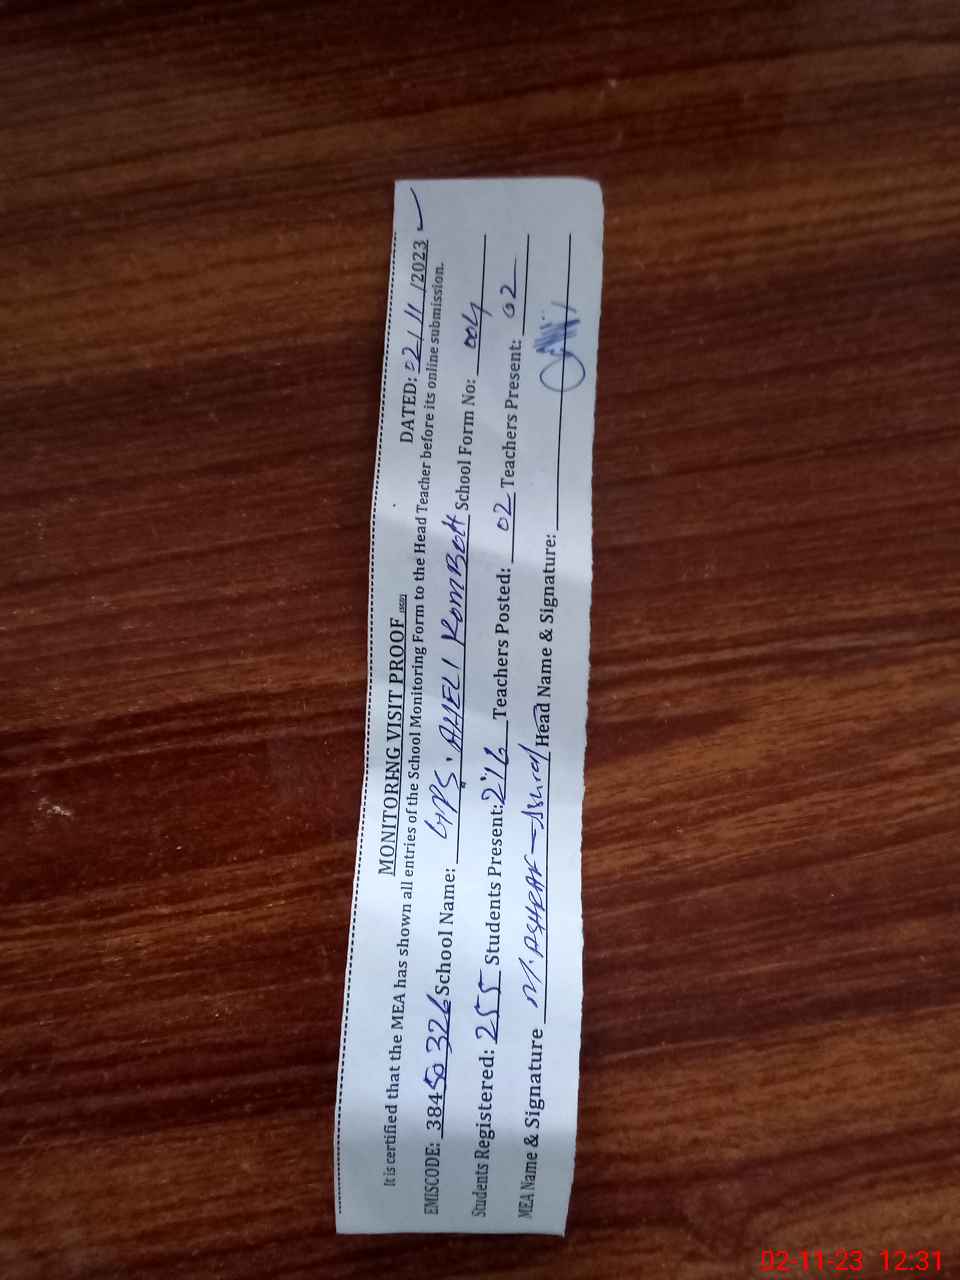 MONITORING VISIT PROOF (SED) DATED: 02/11/2023
It is certified that the MEA has shown all entries of the School Monitoring Form to the Head Teacher before its online submission.
EMISCODE: 38450326 School Name: GPS. AHELI KOMBOH School Form No: 004
Students Registered: 255 Students Present: 216 Teachers Posted: 02 Teachers Present: 02
MEA Name & Signature M. ASHRAF Head Name & Signature:
02-11-23 12:31